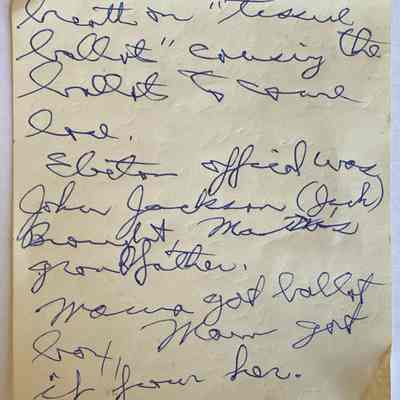 heath on "tissue
ballot" causing the
ballot to come
lose.
Election offical was
John Jackson (Jack)
Brought, Mama's
grandfather.
Mama got ballot
box, Mom got
it from her.